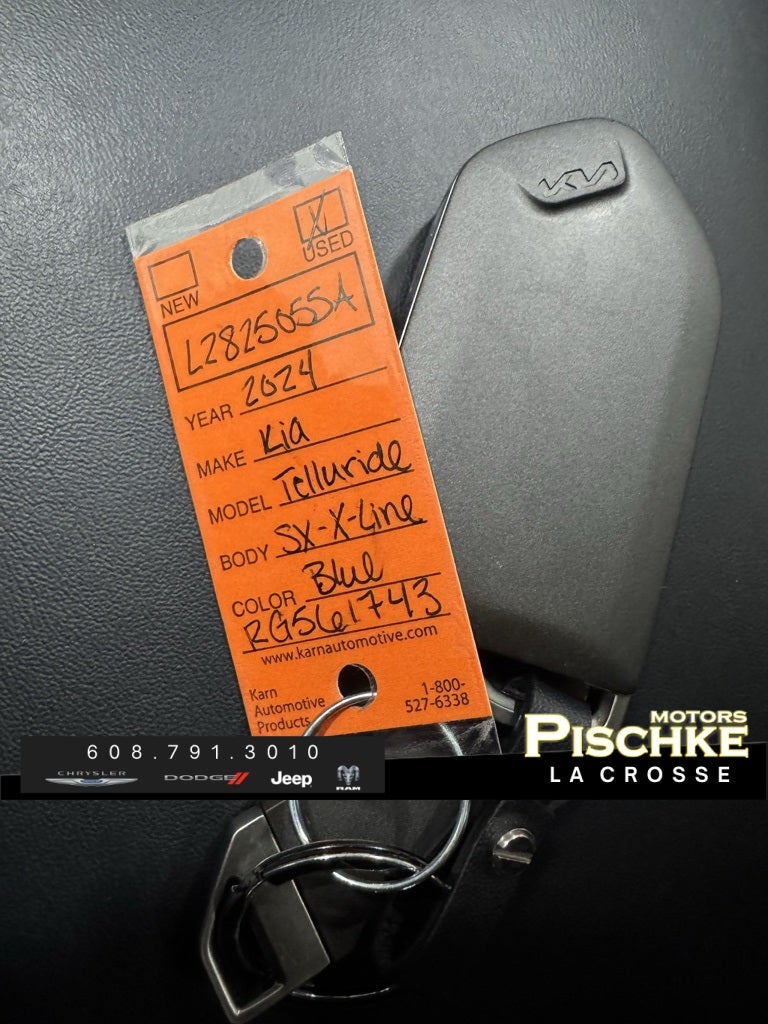 KIA
X
NEW
USED
L282505SA
YEAR 2024
MAKE Kia
MODEL Telluride
BODY SX-X-Line
COLOR Blue
RG561743
www.karnautomotive.com
Karn
Automotive
Products
1-800-
527-6338
608.791.3010
CHRYSLER DODGE Jeep RAM
MOTORS
PISCHKE
LA CROSSE